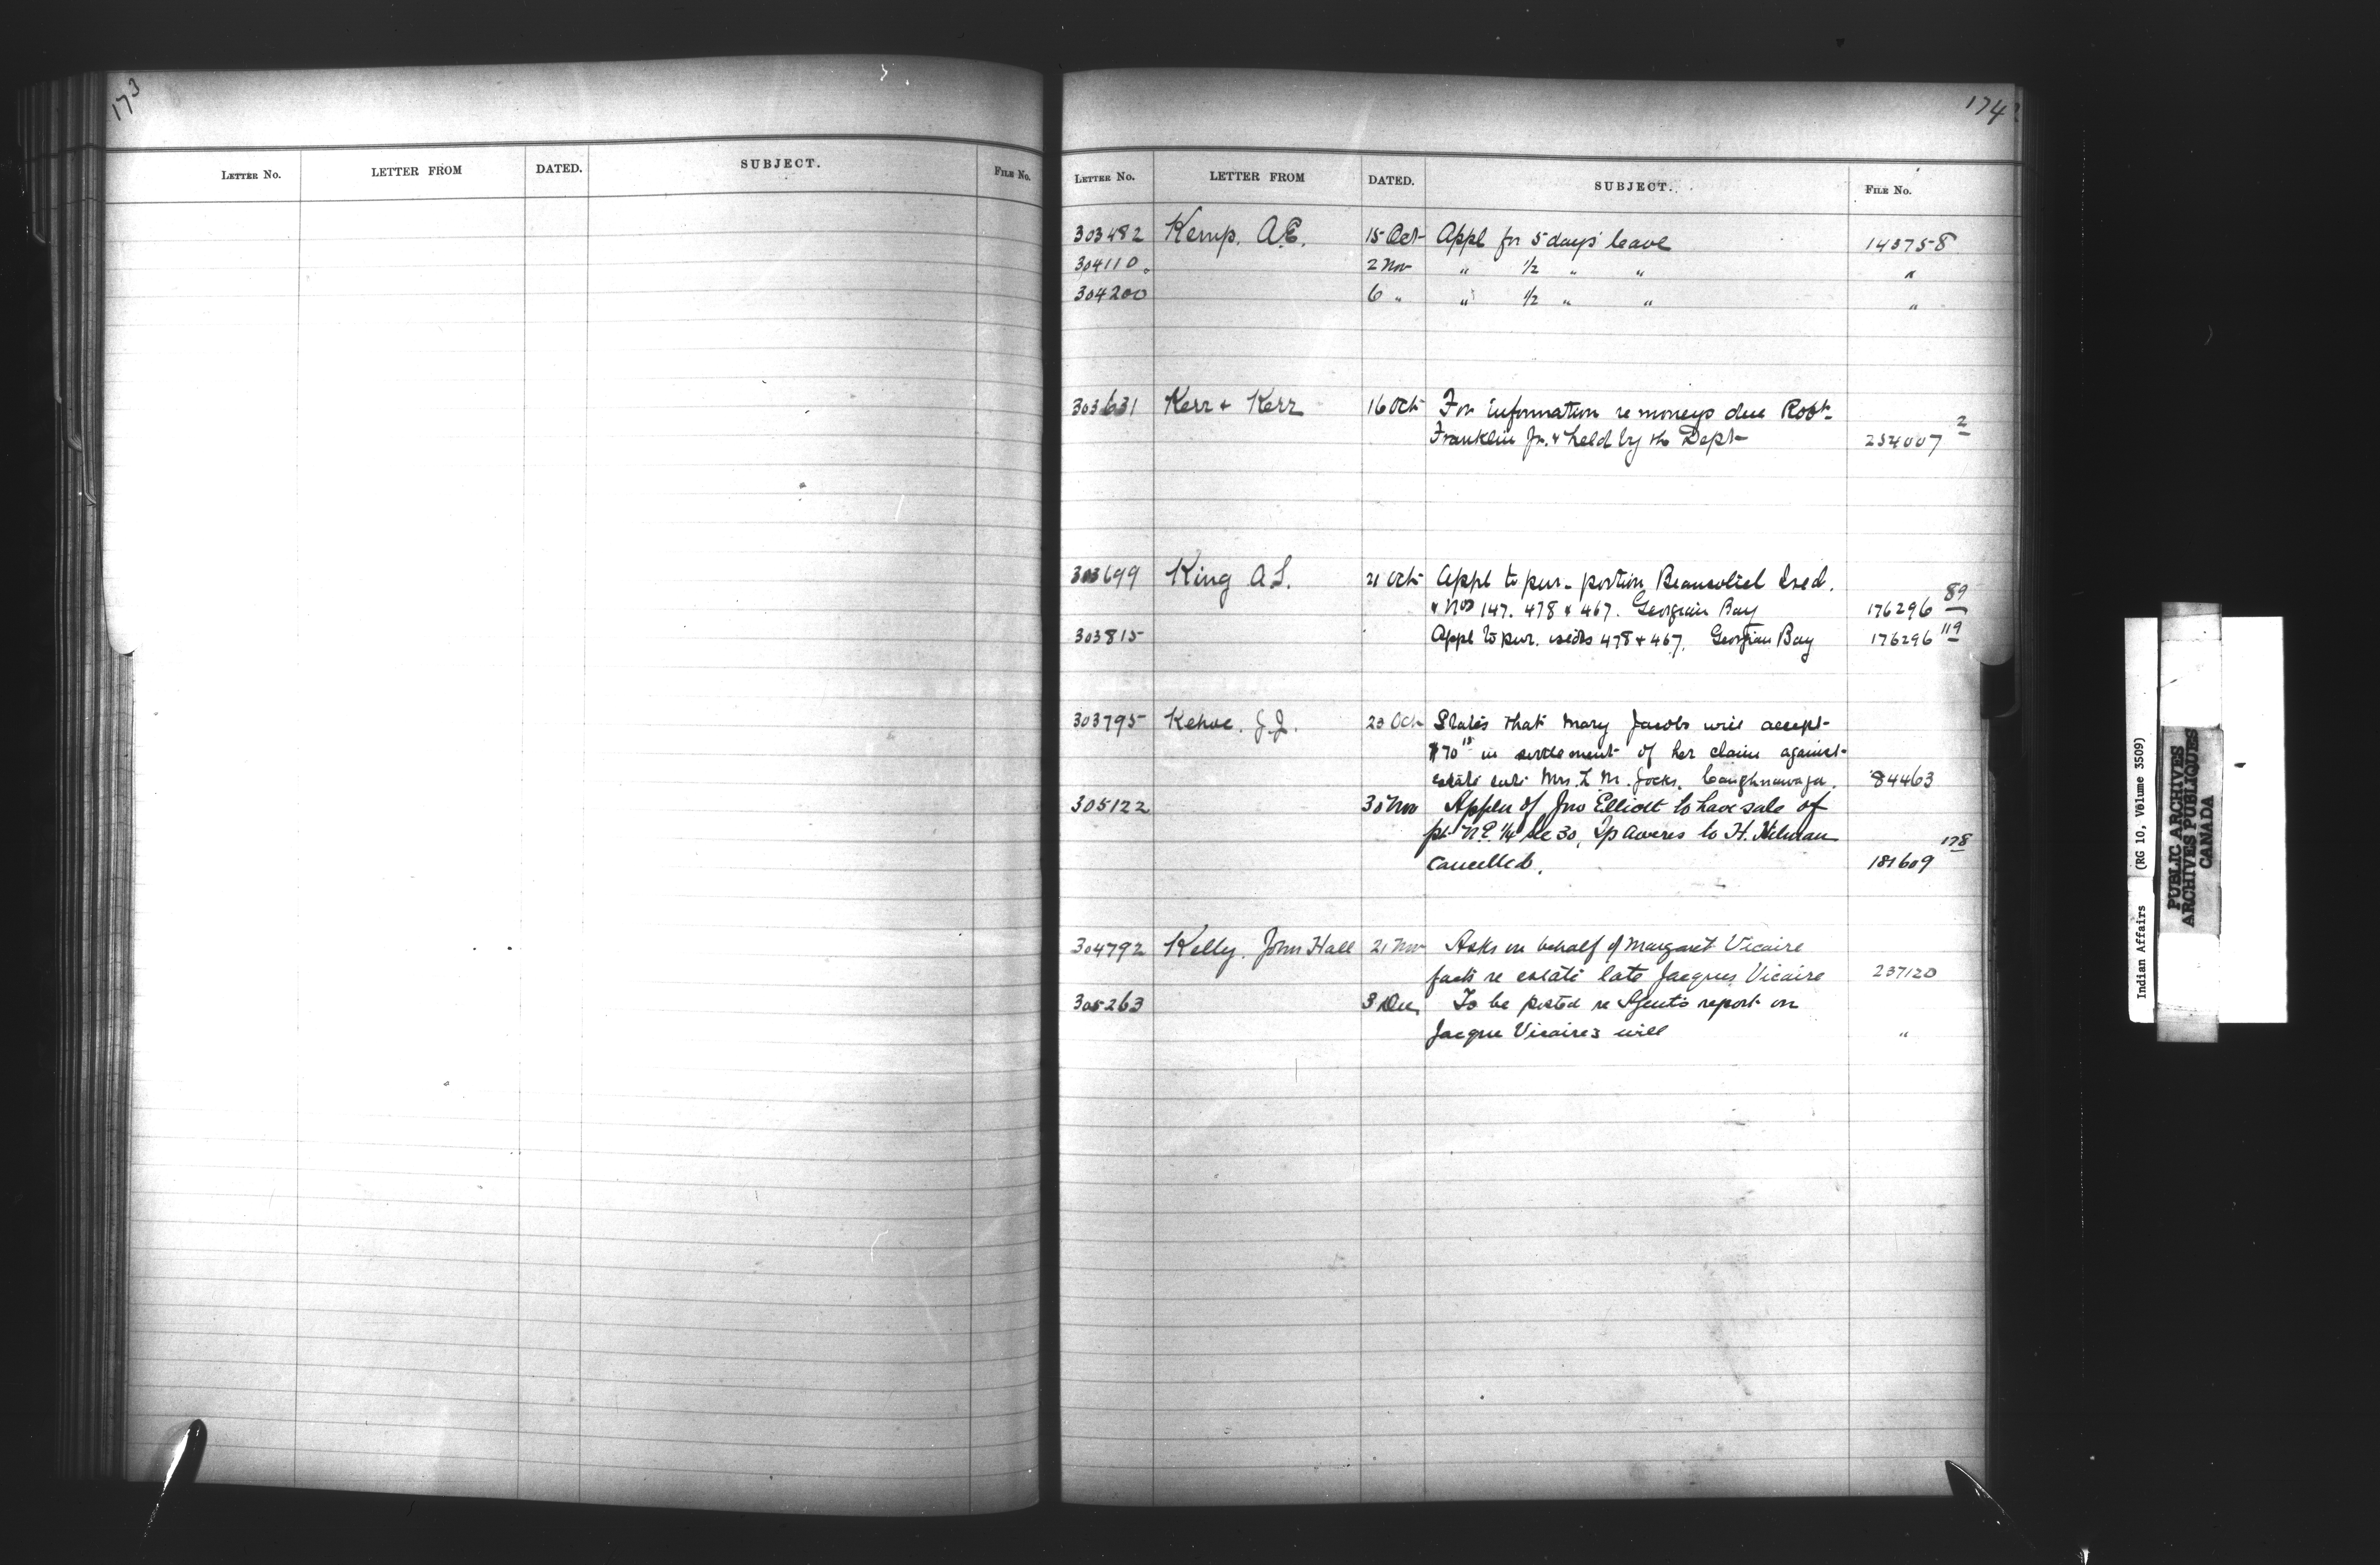 173
LETTER No. LETTER FROM DATED. SUBJECT. FILE No.
174
LETTER No. LETTER FROM DATED. SUBJECT. FILE No.
303482 Kemp. A.E. 15 Oct Appl for 5 days leave 143758
304110 2 Nov " 1/2 " " "
304200 6 " " 1/2 " " "
303631 Kerr & Kerr 16 Oct For information re moneys due Robt.
Franklin Jr. & held by the Dept 254007 2
303699 King A.S. 21 Oct Appl to pur. portion Beausoliel Ised.
& Nos 147. 478 & 467. Georgian Bay 176296 89
303815 Appl to pur. isds 478 & 467. Georgian Bay 176296 119
303795 Kehoe. J.J. 23 Oct States that Mary Jacobs will accept
$70 15 in settlement of her claim against
estate late Mrs. L. M. Jocks, Caughnawaga. 84463
305122 30 Nov Appln of Jno Elliott to have sale of
pt N.E. 1/4 Sec 30, Tp Aweres to H.
cancelled. 181609 178
304792 Kelly. John Hall 21 Nov Asks on behalf of Margaret Vicaire
facts re estate late Jacques Vicaire 237120
305263 3 Dec To be posted re Agent's report on
Jacque Vicaire's will "
Indian Affairs (RG 10, Volume 3509)
PUBLIC ARCHIVES
ARCHIVES PUBLIQUES
CANADA